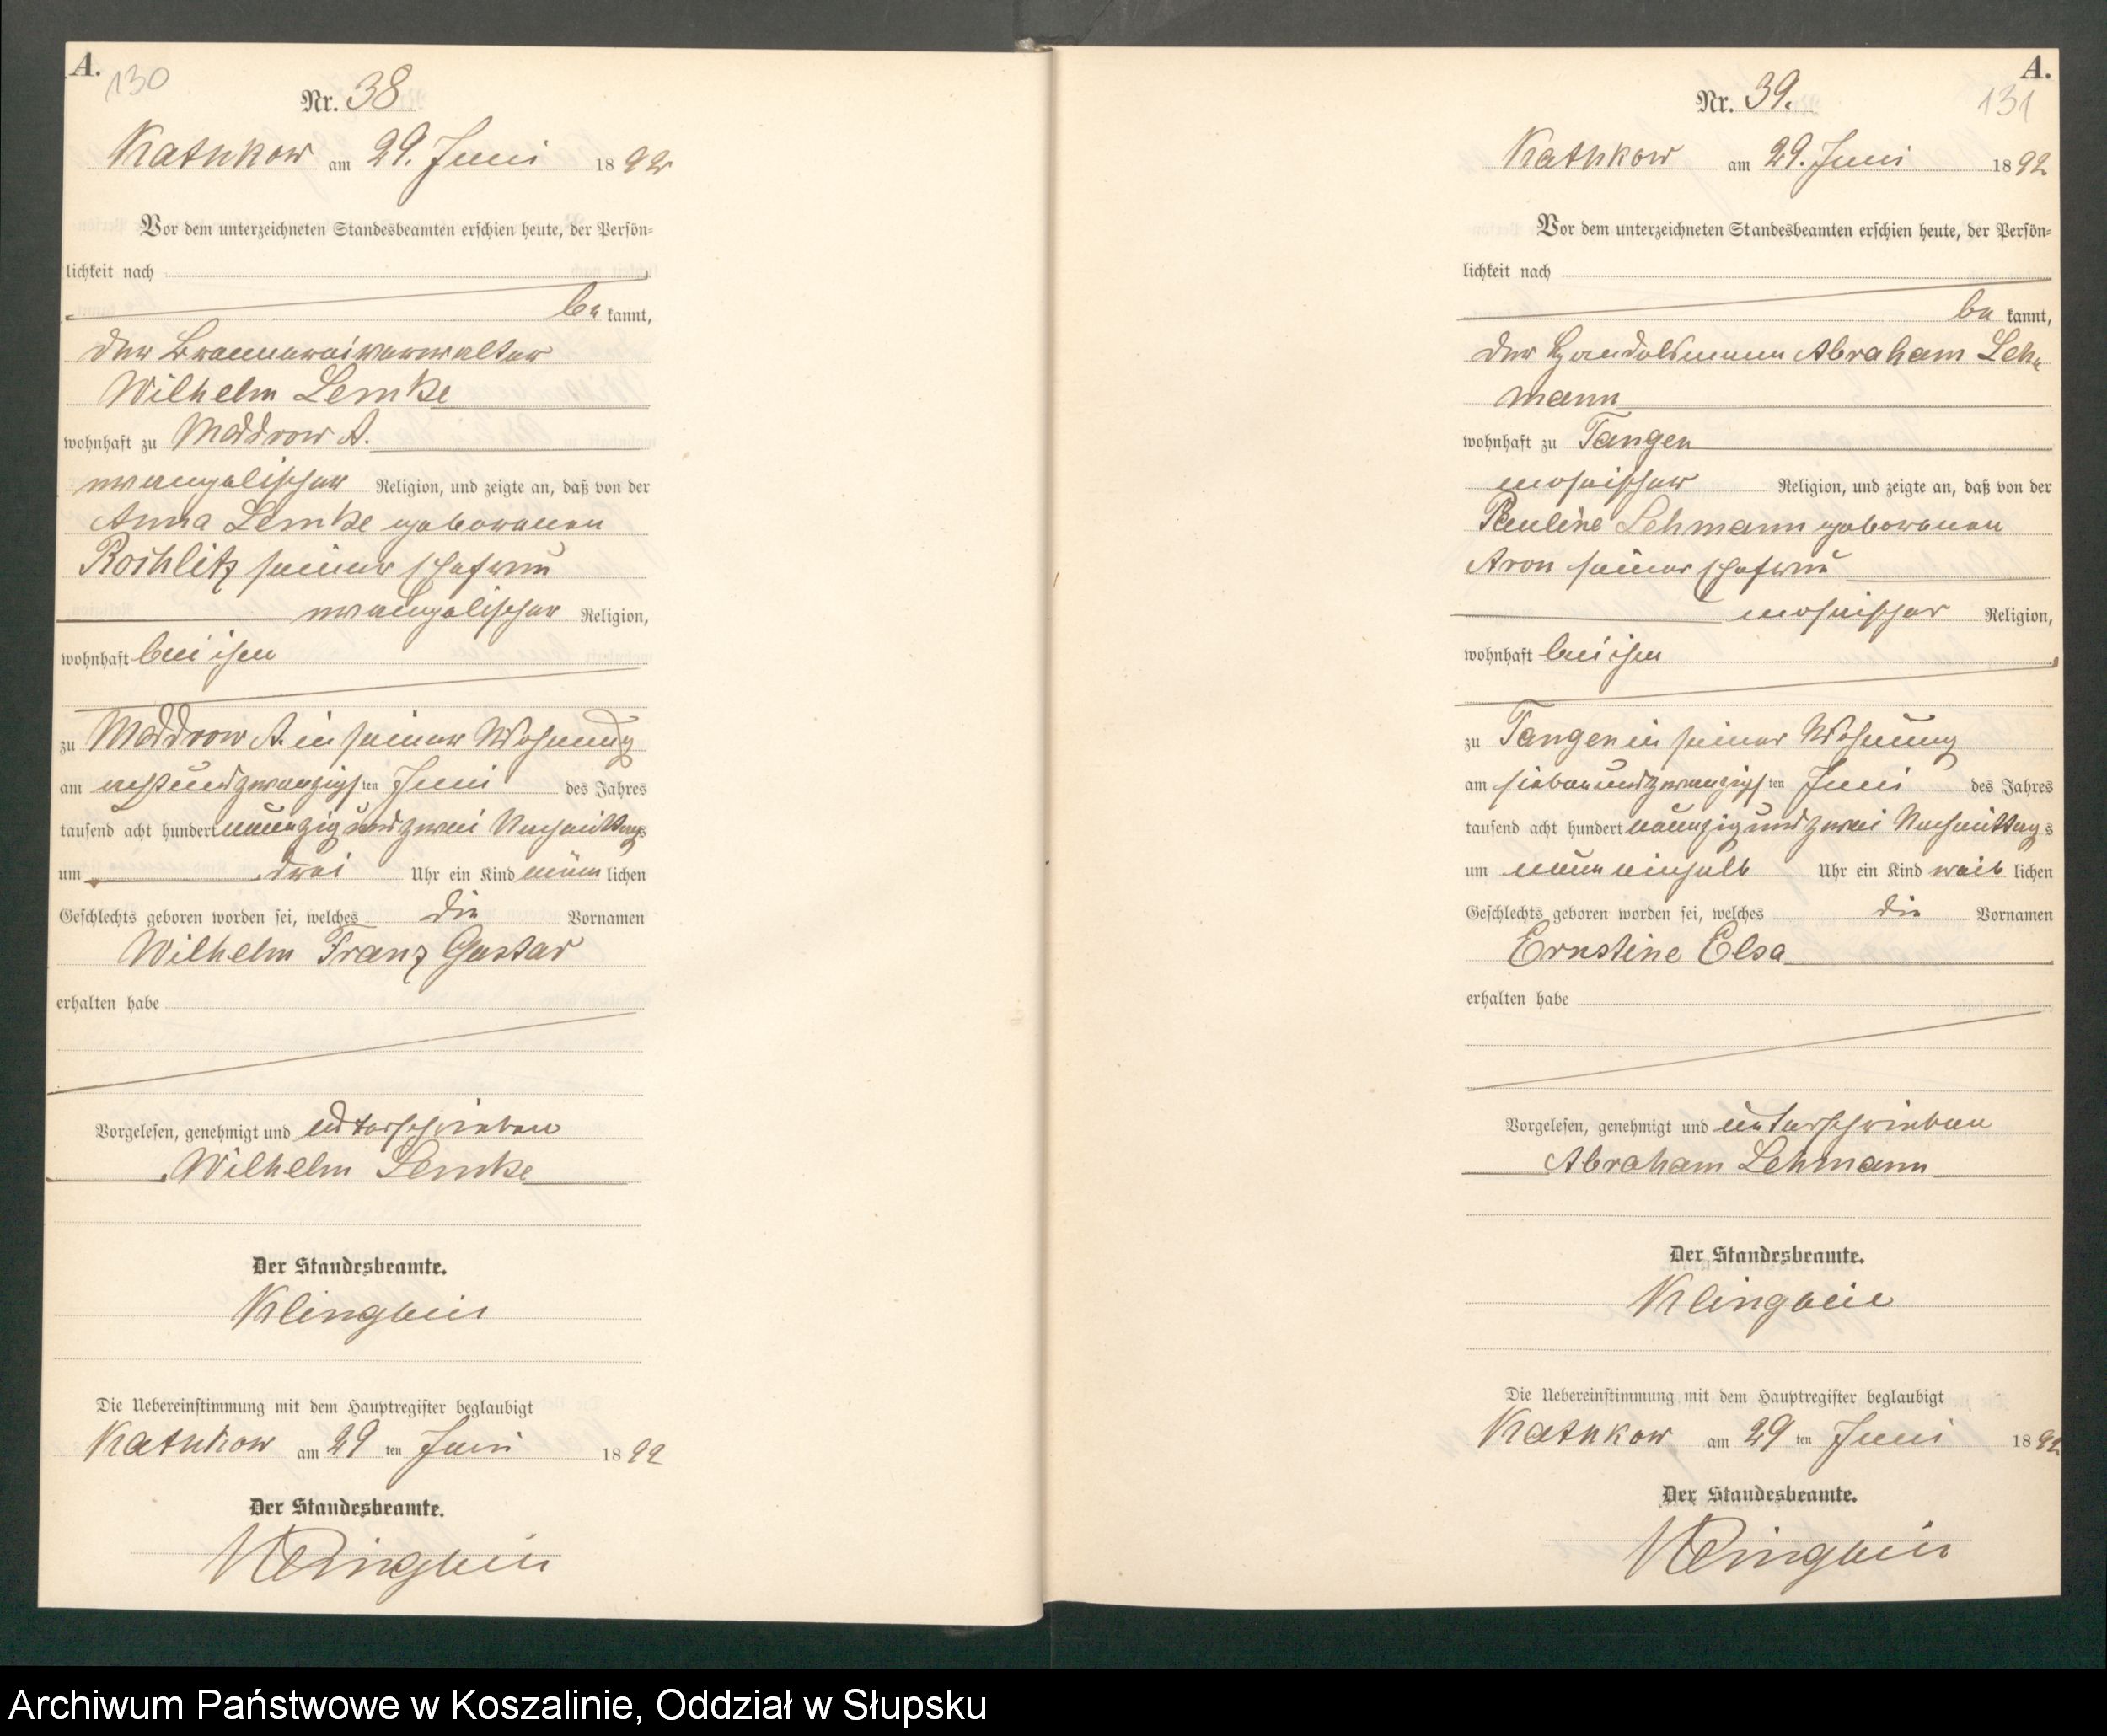 A.
130
Nr. 38
Kathkow am 29. Juni 1892
Vor dem unterzeichneten Standesbeamten erschien heute, der Persön-
lichkeit nach
be kannt,
der Brennereiverwalter
Wilhelm Lemke
wohnhaft zu Moddrow A.
evangelischer Religion, und zeigte an, daß von der
Anna Lemke geborenen
Rochlitz seiner Ehefrau
evangelischer Religion,
wohnhaft bei ihm
zu Moddrow A. in seiner Wohnung
am achtundzwanzigsten Juni des Jahres
tausend acht hundert neunzig und zwei Nachmittags
um drei Uhr ein Kind männlichen
Geschlechts geboren worden sei, welches die Vornamen
Wilhelm Franz Gustav
erhalten habe
Vorgelesen, genehmigt und unterschrieben
Wilhelm Lemke
Der Standesbeamte.
Klingbeil
Die Uebereinstimmung mit dem Hauptregister beglaubigt
Kathkow am 29 ten Juni 1892
Der Standesbeamte.
Klingbeil
A.
131
Nr. 39.
Kathkow am 29. Juni 1892
Vor dem unterzeichneten Standesbeamten erschien heute, der Persön-
lichkeit nach
be kannt,
der Handelsmann Abraham Leh-
mann
wohnhaft zu Tangen
mosaischer Religion, und zeigte an, daß von der
Pauline Lehmann geborenen
Aron seiner Ehefrau
mosaischer Religion,
wohnhaft bei ihm
zu Tangen in seiner Wohnung
am siebenundzwanzigsten Juni des Jahres
tausend acht hundert neunzig und zwei Nachmittags
um neuneinhalb Uhr ein Kind weiblichen
Geschlechts geboren worden sei, welches die Vornamen
Ernstine Elsa
erhalten habe
Vorgelesen, genehmigt und unterschrieben
Abraham Lehmann
Der Standesbeamte.
Klingbeil
Die Uebereinstimmung mit dem Hauptregister beglaubigt
Kathkow am 29 ten Juni 1892
Der Standesbeamte.
Klingbeil
Archiwum Państwowe w Koszalinie, Oddział w Słupsku